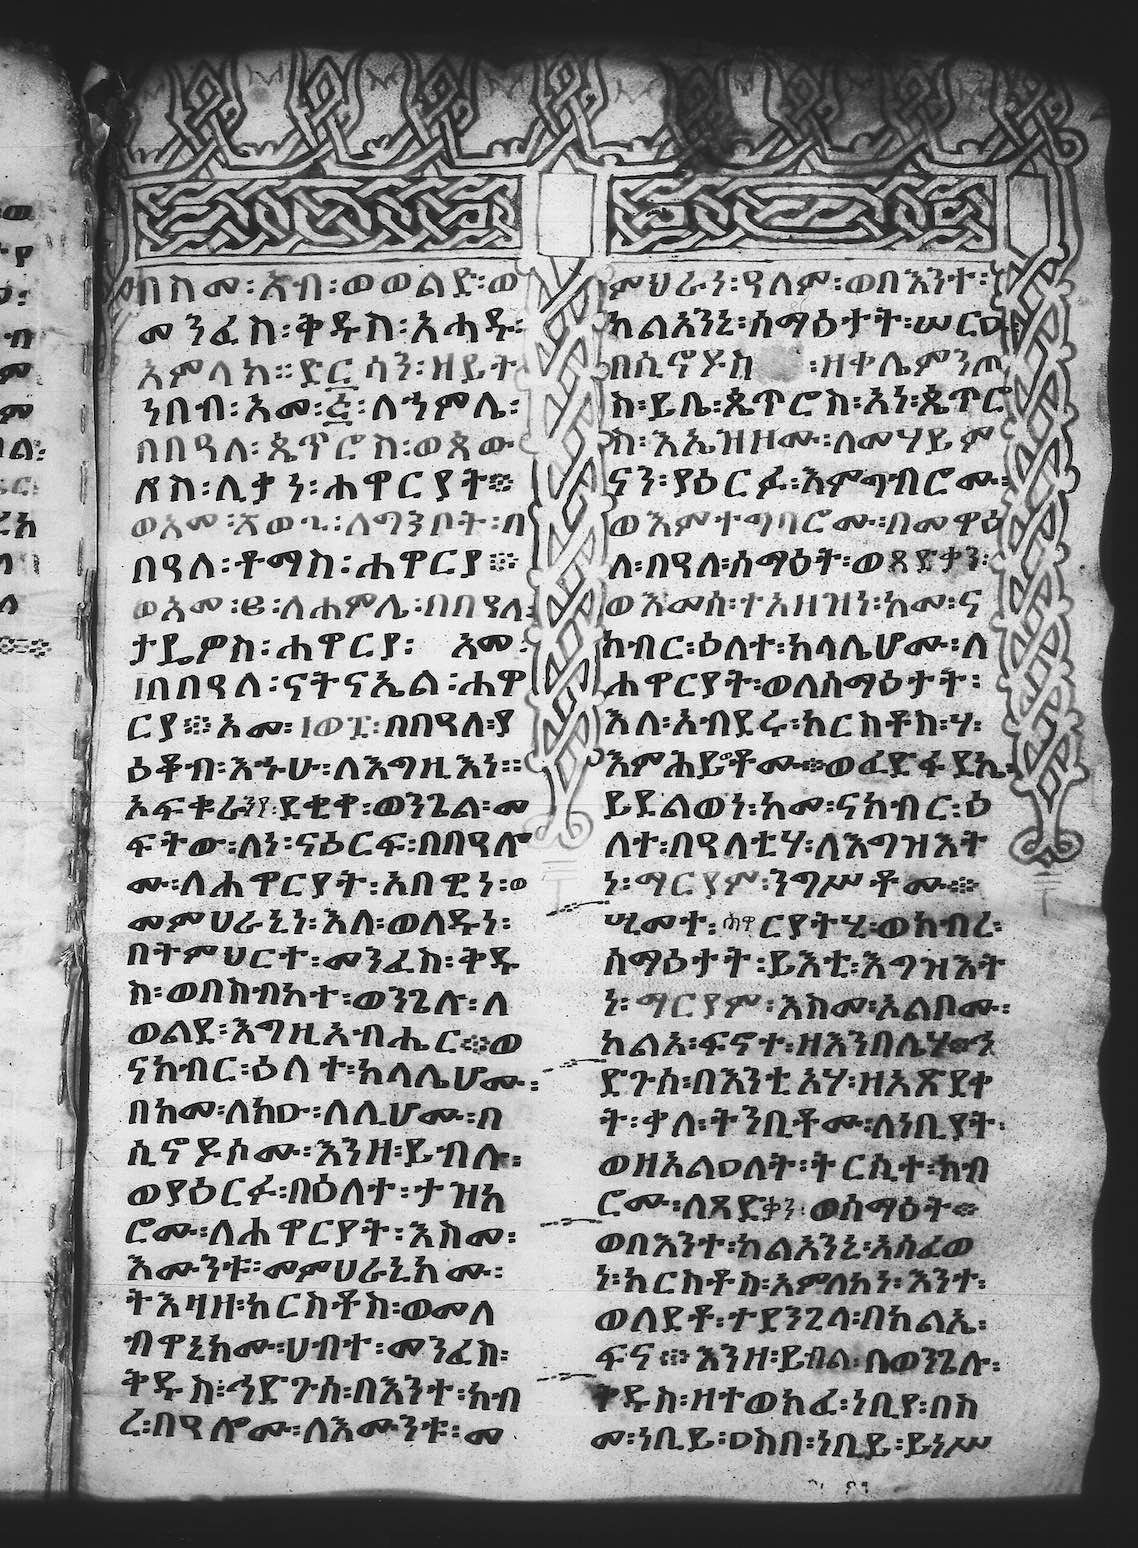 በስመ፡ አብ፡ ወወልድ፡ ወ
መንፈስ፡ ቅዱስ፡ አሓዱ፡
አምላክ። ድርሳን፡ ዘይት
ነበብ፡ አመ፡ ፭፡ ለኀምሌ፡
በበዓለ፡ ጴጥሮስ፡ ወጳው
ሎስ፡ ሊቃነ፡ ሐዋርያት፨
ወአመ፡ ለግንቦት፡ በ
በዓለ፡ ቶማስ፡ ሐዋርያ፨
ወአመ፡ ፩፡ ለሐምሌ፡ በበዓለ፡
ታዴዎስ፡ ሐዋርያ፡ አመ፡
፲በበዓለ፡ ናትናኤል፡ ሐዋ
ርያ፨ አመ፡ ፲ወ፰፡ በበዓለ፡ ያ
ዕቆብ፡ እኁሁ፡ ለእግዚእነ።
ኦፍቁራን፡ ደቂቀ፡ ወንጌል፡ መ
ፍትው፡ ለነ፡ ናዕርፍ፡ በበዓሎ
ሙ፡ ለሐዋርያት፡ አበዊነ፡ ወ
መምህራኒነ፡ እለ፡ ወለዱነ፡
በትምህርተ፡ መንፈስ፡ ቅዱ
ስ፡ ወበስብከተ፡ ወንጌሉ፡ ለ
ወልደ፡ እግዚአብሔር፨ ወ
ናከብር፡ ዕለተ፡ ከላሌሆሙ፡
በከመ፡ ለክዑ፡ ለሊሆሙ፡ በ
ሲኖዶሶሙ፡ እንዘ፡ ይብሉ፡
ወያዕርፉ፡ በዕለተ፡ ታዝካ
ሮሙ፡ ለሐዋርያት፡ እስመ፡
እሙንቱ፡ መምህራኒክሙ፡
ትእዛዘ፡ ክርስቶስ፡ ወመለ
ብዋኒክሙ፡ ሀብተ፡ መንፈስ፡
ቅዱስ፡ ኅድጉሰ፡ በእንተ፡ ክብ
ረ፡ በዓሎሙ፡ ለእሙንቱ፡ መ
ምህራን፡ ዓለም፡ ወበእንተ፡
ካልአንኒ፡ ሰማዕታት፡ ሠርዑ፡
በሲኖዶስ ፡ ዘቀሌምንጦ
ስ፡ ይቤ፡ ጴጥሮስ፡ አነ፡ ጴጥሮ
ስ፡ እኤዝዞሙ፡ ለመሃይም
ናን፡ ያዕርፉ፡ እምግብሮሙ፡
ወእምተግባሮሙ፡ በመዋዕ
ለ፡ በዓለ፡ ሰማዕት፡ ወጻድቃን፡
ወእመሰ፡ ተአዘዝነ፡ ከመ፡ ና
ከብር፡ ዕለተ፡ ከላሌሆሙ፡ ለ
ሐዋርያት፡ ወለሰማዕታት፡
እለ፡ አብደሩ፡ ክርስቶስ፡ ሃ፡
እምሕይዮቶሙ፨ ወፈድፋደኬ፡
ይደልወነ፡ ከመ፡ ናከብር፡ ዕ
ለተ፡ በዓላቲሃ፡ ለእግዝእት
ነ፡ ማርያም፡ ንግሥቶሙ፨
ሢመተ፡ ሐዋርያትሂ፡ ወክብረ፡
ሰማዕታት፡ ይእቲ፡ እግዝእት
ነ፡ ማርያም፡ እስመ፡ አልቦሙ፡
ካልአ፡ ፍኖተ፡ ዘእንበሌሃ፨ ኅ
ድጉሰ፡ በእንቲአሃ፡ ዘአጽደቀ
ት፡ ቃለ፡ ትንቢቶሙ፡ ለነቢያት፡
ወዘአልዐለት፡ ትርሲተ፡ ክብ
ሮሙ፡ ለጻድቃን፡ ወሰማዕት፨
ወበእንተ፡ ካልአንኒ፡ አሰፈወ
ነ፡ ክርስቶስ፡ አምላክነ፡ እንተ፡
ወለደቶ፡ ተደንጊላ፡ በክልኤ፡
ፍና፨ እንዘ፡ ይብል፡ በወንጌሉ፡
ቅዱስ፡ ዘተወክፈ፡ ነቢየ፡ በስ
መ፡ ነቢይ፡ ዐስበ፡ ነቢይ፡ ይነሥ